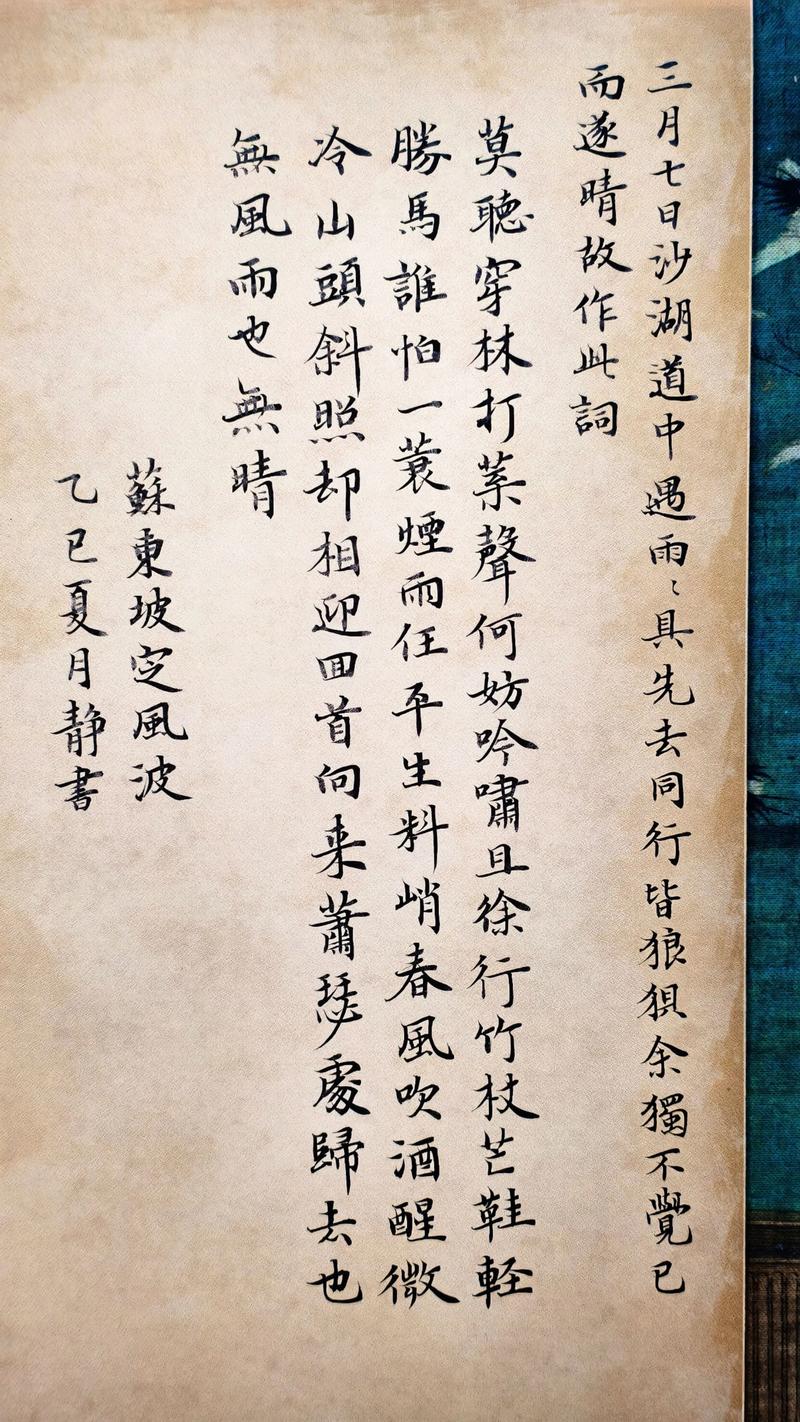 三月七日沙湖道中遇雨〻具先去同行皆狼狽余獨不覺已
而遂晴故作此詞
莫聽穿林打葉聲何妨吟嘯且徐行竹杖芒鞋軽
勝馬誰怕一蓑煙雨任平生料峭春風吹酒醒微
冷山頭斜照却相迎回首向来蕭瑟處歸去也
無風雨也無晴
蘇東坡定風波
乙巳夏月靜書